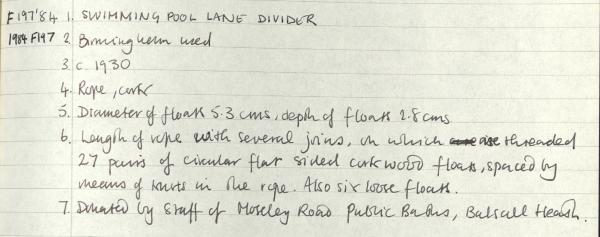 F197'84 1. SWIMMING POOL LANE DIVIDER
1984 F197 2. Birmingham used
3. c. 1930
4. Rope, cork
5. Diameter of floats 5.3 cms, depth of floats 2.8 cms
6. Length of rope with several joins, on which are threaded
27 pairs of circular flat sided cork wood floats, spaced by
means of knots in the rope. Also six loose floats.
7. Donated by Staff of Moseley Road Public Baths, Balsall Heath.